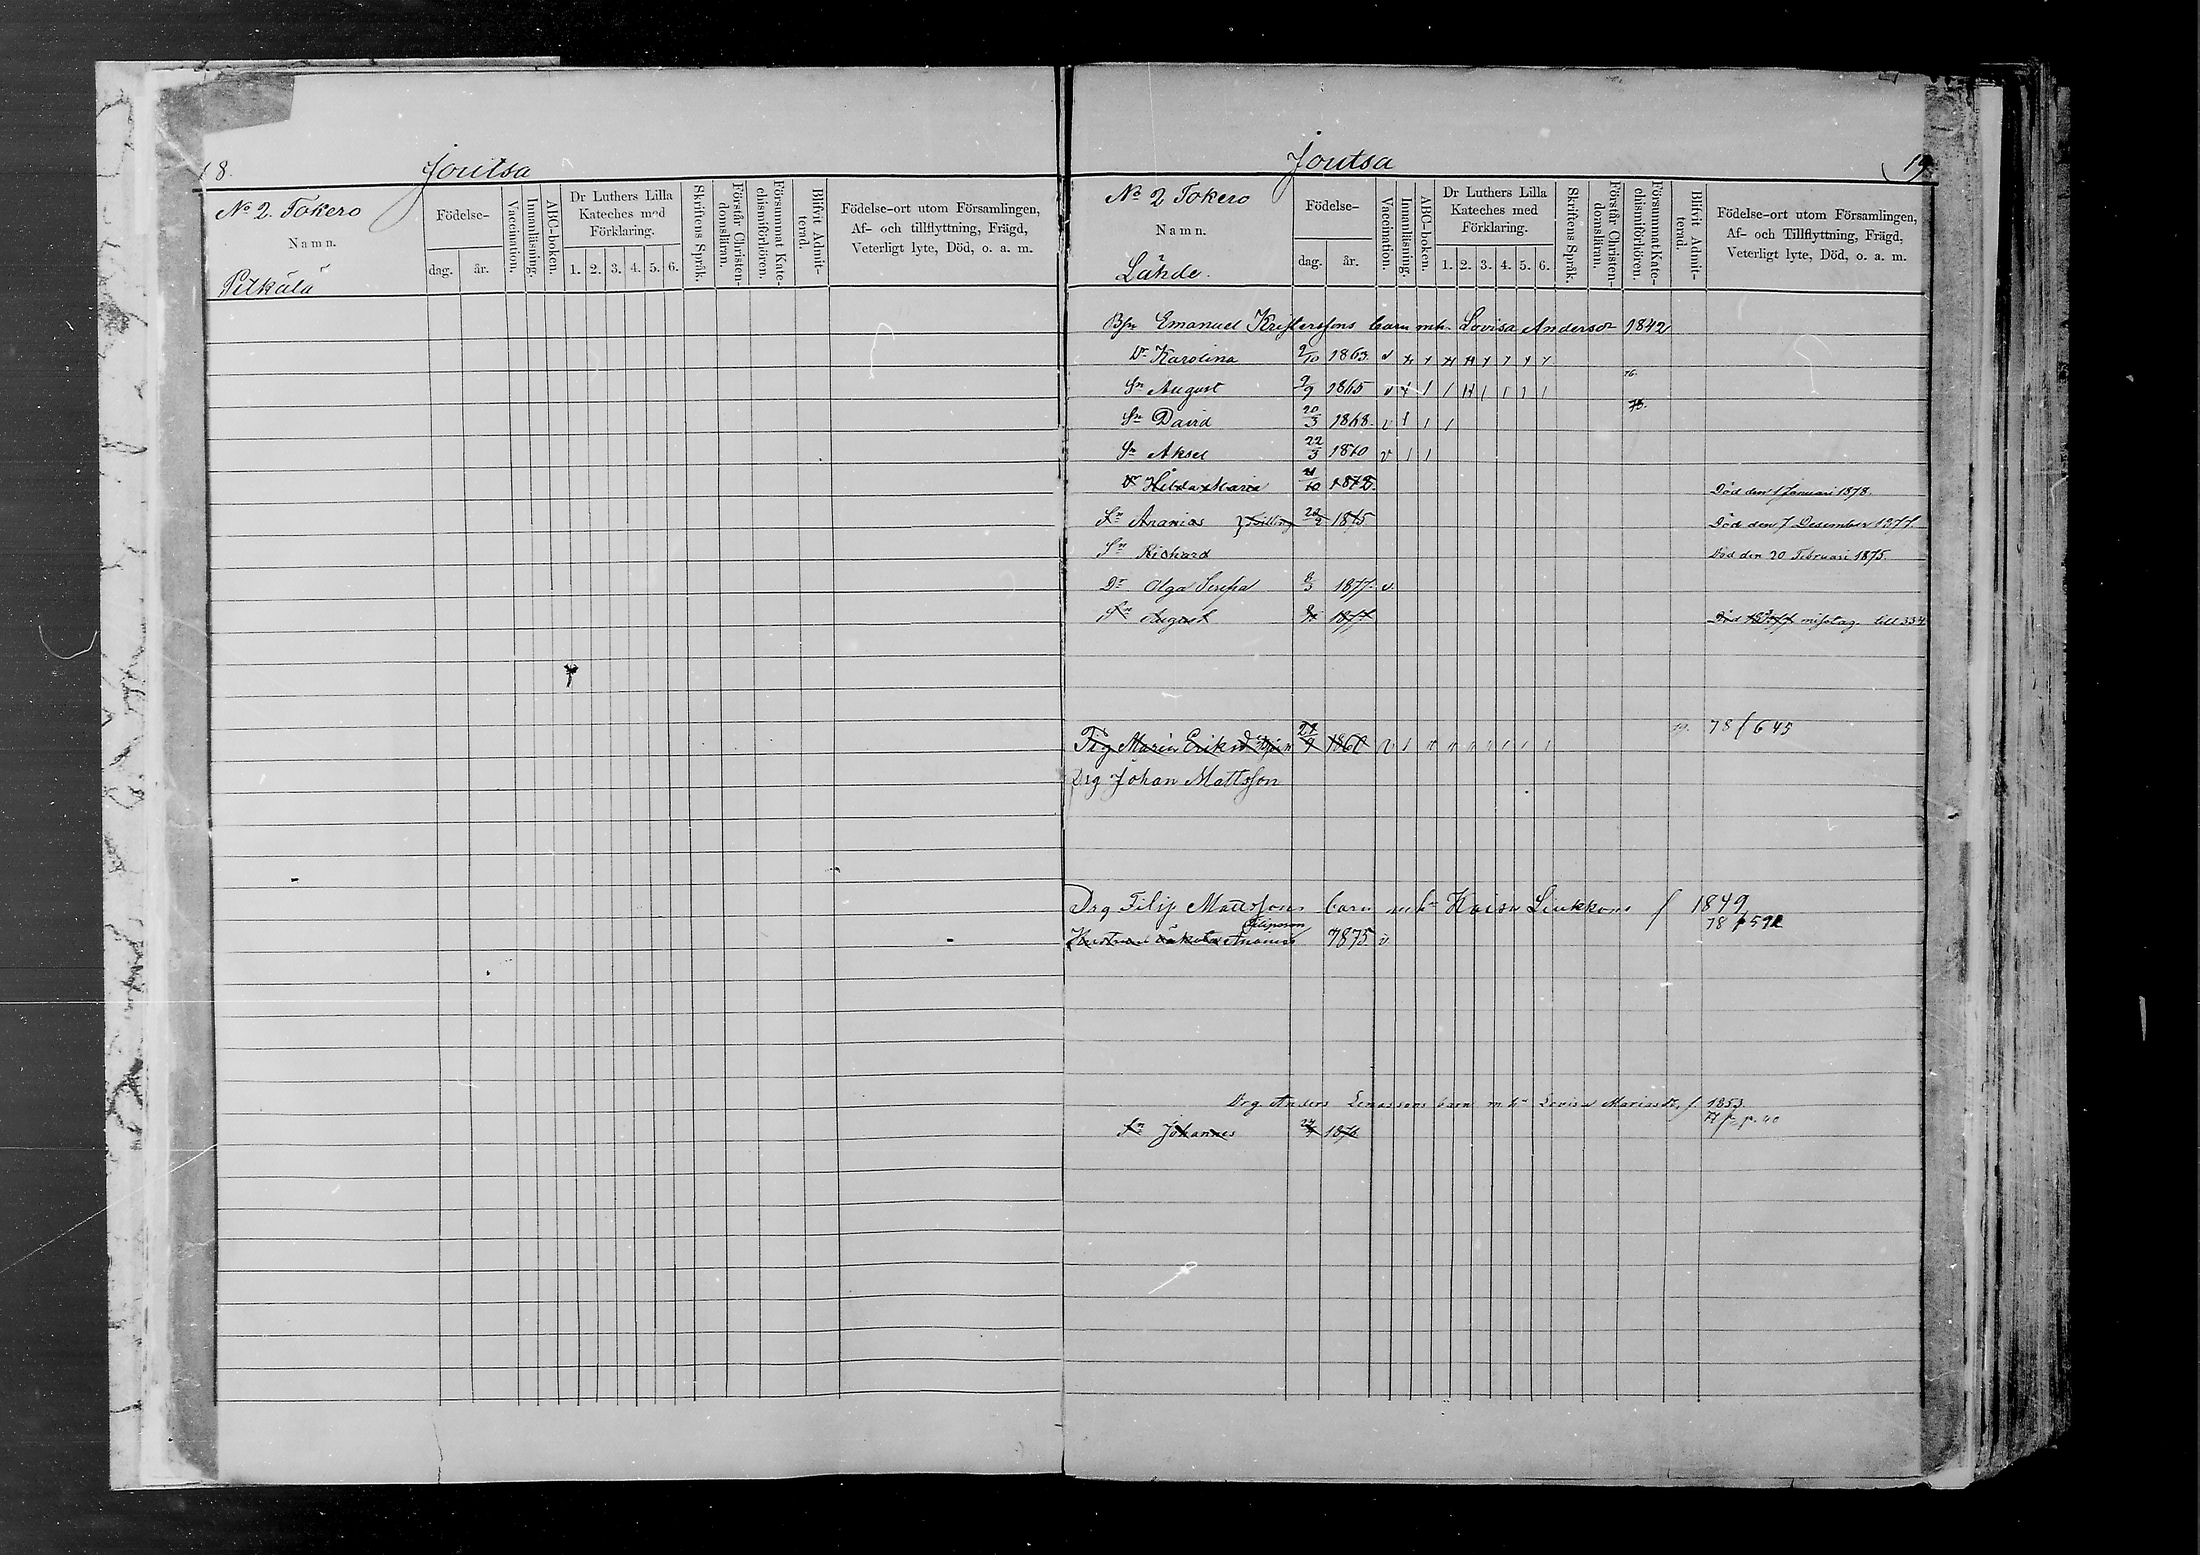 18.
Joutsa
No 2. Tokero
Namn.
Pitkälä
Födelse-
dag.
år.
Vaccination.
Innanläsning.
ABC-boken.
Dr Luthers Lilla
Kateches med
Förklaring.
1. 2. 3. 4. 5. 6.
Skriftens Språk.
Förstår Christen-
domsläran.
Försummat Kate-
chismiförhören.
Blifvit Admit-
terad.
Födelse-ort utom Församlingen,
Af- och tillflyttning, Frägd,
Veterligt lyte, Död, o. a. m.
Joutsa
19
No 2 Tokero
Namn.
Lähde.
Födelse-
dag.
år.
Vaccination.
Innanläsning.
ABC-boken.
Dr Luthers Lilla
Kateches med
Förklaring.
1. 2. 3. 4. 5. 6.
Skriftens Språk.
Förstår Christen-
domsläran.
Försummat Kate-
chismiförhören.
Blifvit Admit-
terad.
Födelse-ort utom Församlingen,
Af- och Tillflyttning, Frägd,
Veterligt lyte, Död, o. a. m.
Emanuel Kristerssons barn mh. Lovisa Andersdr 1842
Dr Karolina 9/10 1863 v
Sn August 9/9 1865 v 76.
Sn David 20/3 1868. v
Sn Aksel 22/3 1870 v
Dr Hilda Maria 1872. Död den 1 Januari 1878.
Sn Ananias } Tvilling 1875 Död den 7 Desember 1877
Sn Richard Död den 20 Februari 1875.
Dr Olga Serafia 8/3 1877. v.
Sn August 1877 Död misstag. till 334
Maria 29/9 1860 v 19. 78 f 645
Drg Johan Mattsson
Drg Filip Mattssons barn mhu Kaisa Liukkons f 1849
Filipsson 78 f 591
1875 v
Drg. Anders barn m hu Lovisa f. 1853
Sn Johannes 1876 p. 40